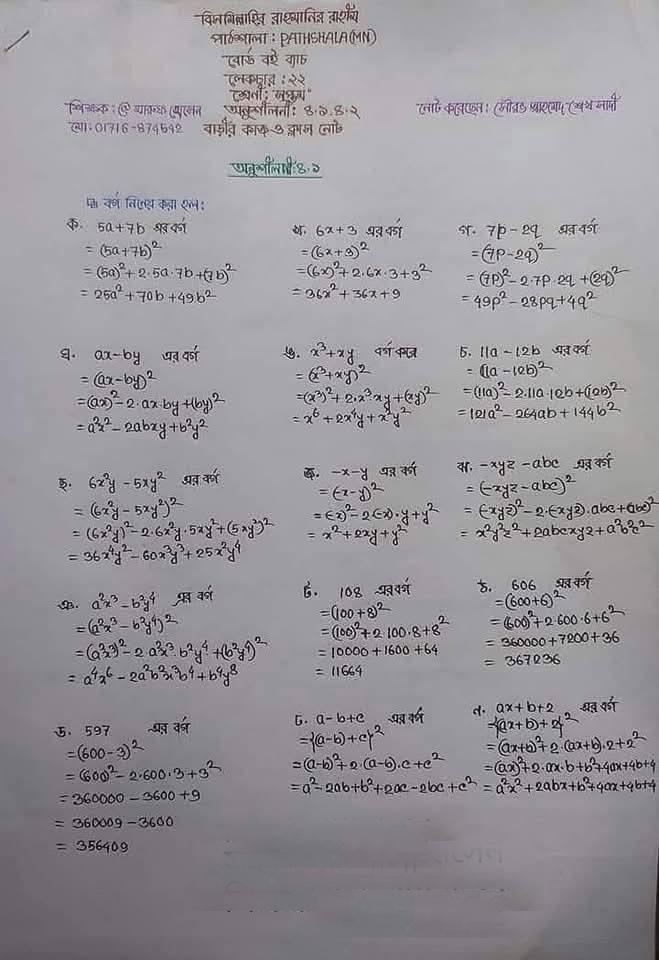 বিসমিল্লাহির রাহমানির রাহীম
পাঠশালা : PATHSHALA(MN)
বোর্ড বই ব্যাচ
লেকচার : ২২
শ্রেনী : সপ্তম
শিক্ষক : মোঃ হোসেন অনুশীলনী : ৪.১, ৪.২ নোট করেছেন : সৌরভ আহমেদ শেখ সাদী
মো: 01716-874592 বাড়ীর কাজ ও ক্লাস নোট
অনুশীলনী: ৪.১
বর্গ নির্ণয় করা হল :
ক. 5a+7b এর বর্গ
= (5a+7b)²
= (5a)²+2·5a·7b+(7b)²
= 25a²+70b+49b²
খ. 6x+3 এর বর্গ
= (6x+3)²
= (6x)²+2·6x·3+3²
= 36x²+36x+9
গ. 7p-2q এর বর্গ
= (7p-2q)²
= (7p)²-2·7p·2q+(2q)²
= 49p²-28pq+4q²
ঘ. ax-by এর বর্গ
= (ax-by)²
= (ax)²-2·ax·by+(by)²
= a²x²-2abxy+b²y²
ঙ. x³+xy বর্গ
= (x³+xy)²
= (x³)²+2·x³xy+(xy)²
= x⁶+2x⁴y+x²y²
চ. 11a-12b এর বর্গ
= (11a-12b)²
= (11a)²-2·11a·12b+(12b)²
= 121a²-264ab+144b²
ছ. 6x²y-5xy² এর বর্গ
= (6x²y-5xy²)²
= (6x²y)²-2·6x²y·5xy²+(5xy²)²
= 36x⁴y²-60x³y³+25x²y⁴
জ. -x-y এর বর্গ
= (-x-y)²
= (-x)²-2(-x)·y+y²
= x²+2xy+y²
ঝ. -xyz-abc এর বর্গ
= (-xyz-abc)²
= (-xyz)²-2·(-xyz)·abc+(abc)²
= x²y²z²+2abcxyz+a²b²c²
ঞ. a²x³-b²y⁴ এর বর্গ
= (a²x³-b²y⁴)²
= (a²x³)²-2·a²x³·b²y⁴+(b²y⁴)²
= a⁴x⁶-2a²b²x³y⁴+b⁴y⁸
ট. 108 এর বর্গ
= (100+8)²
= (100)²+2·100·8+8²
= 10000+1600+64
= 11664
ঠ. 606 এর বর্গ
= (600+6)²
= (600)²+2·600·6+6²
= 360000+7200+36
= 367236
ড. 597 এর বর্গ
= (600-3)²
= (600)²-2·600·3+3²
= 360000-3600+9
= 360009-3600
= 356409
ঢ. a-b+c এর বর্গ
= {(a-b)+c}²
= (a-b)²+2·(a-b)·c+c²
= a²-2ab+b²+2ac-2bc+c²
ন. ax+b+2 এর বর্গ
= {(ax+b)+2}²
= (ax+b)²+2·(ax+b)·2+2²
= (ax)²+2·ax·b+b²+4ax+4b+4
= a²x²+2abx+b²+4ax+4b+4